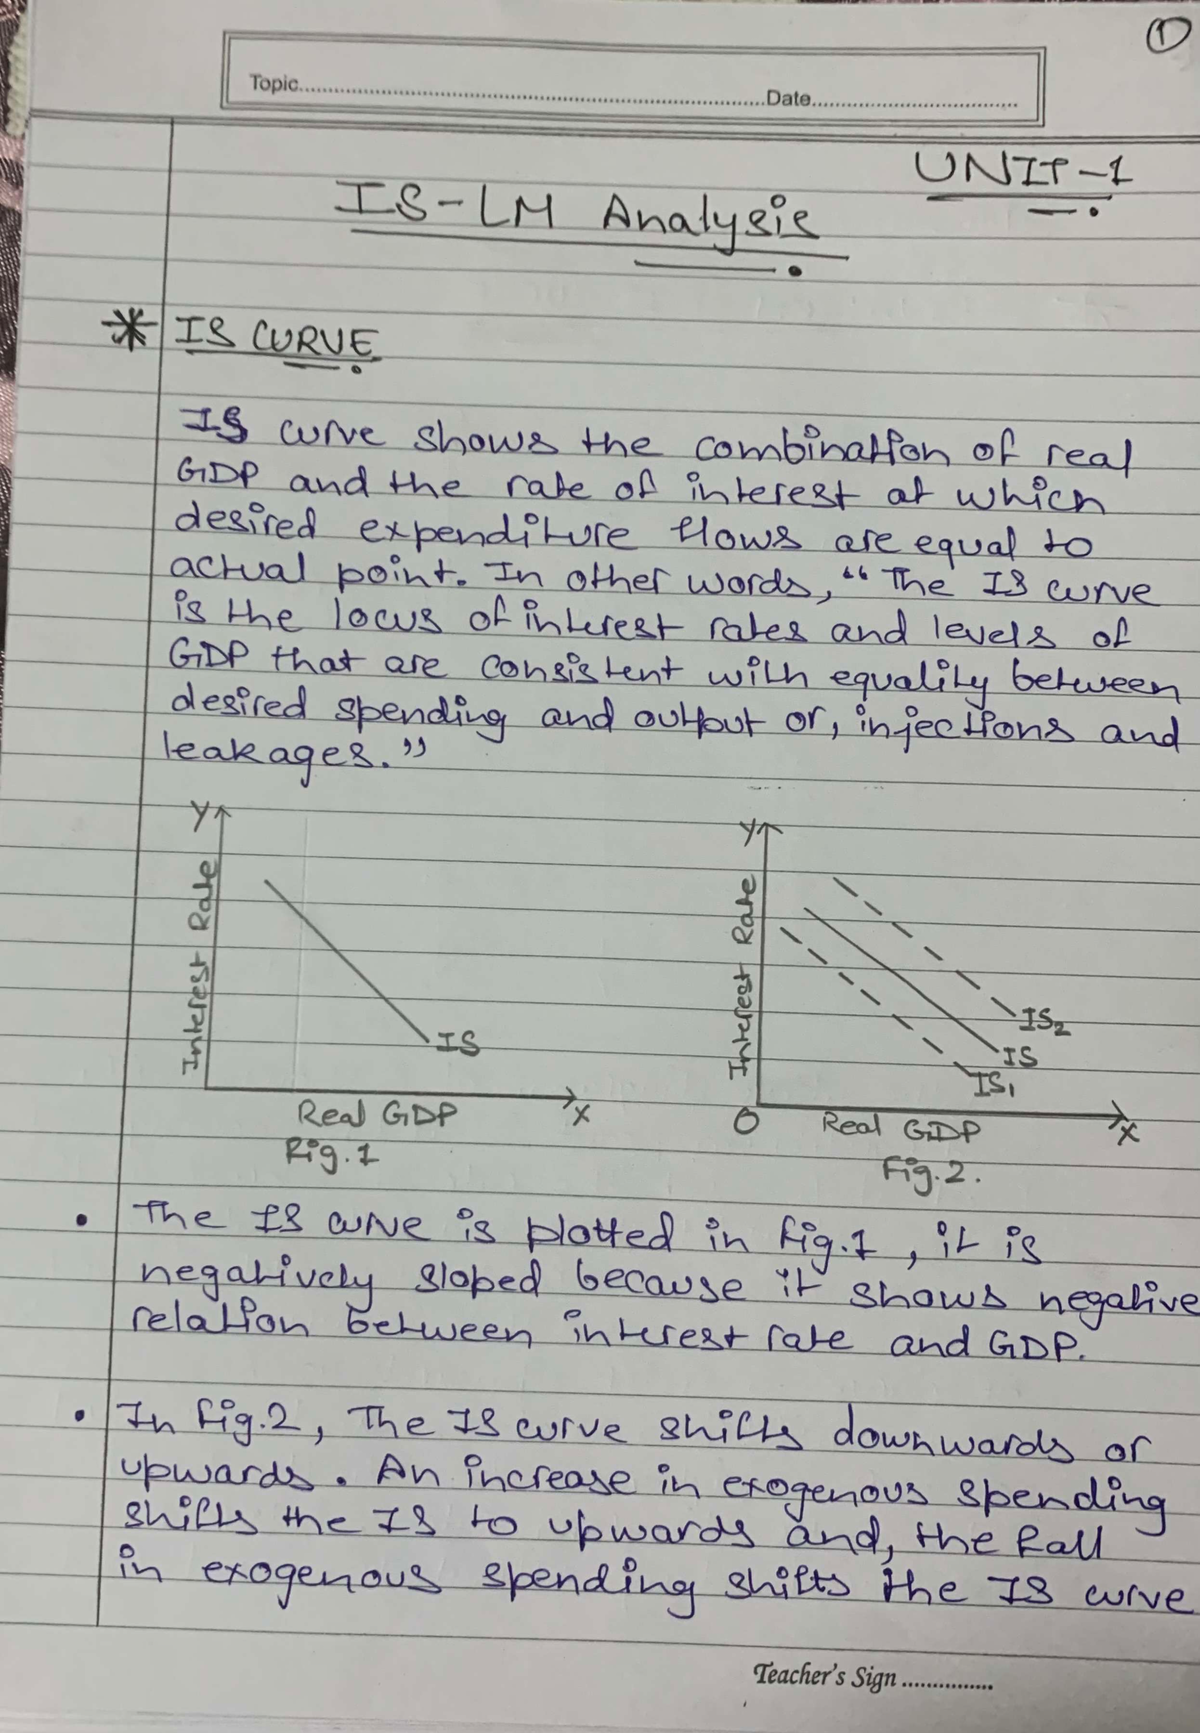 ①
Topic..............................Date..............................
UNIT-1
IS-LM Analysis
* IS CURVE
IS curve shows the combination of real
GDP and the rate of interest at which
desired expenditure flows are equal to
actual point. In other words, “The IS curve
is the locus of interest rates and levels of
GDP that are consistent with equality between
desired spending and output or, injections and
leakages.”
Y
Interest Rate
IS
Real GDP
X
Fig.1
Y
Interest Rate
IS2
IS
IS1
O
Real GDP
X
Fig.2.
• The IS curve is plotted in fig.1, it is
negatively sloped because it shows negative
relation between interest rate and GDP.
• In fig.2, The IS curve shifts downwards or
upwards. An increase in exogenous spending
shifts the IS to upwards and, the fall
in exogenous spending shifts the IS curve
Teacher's Sign ...............